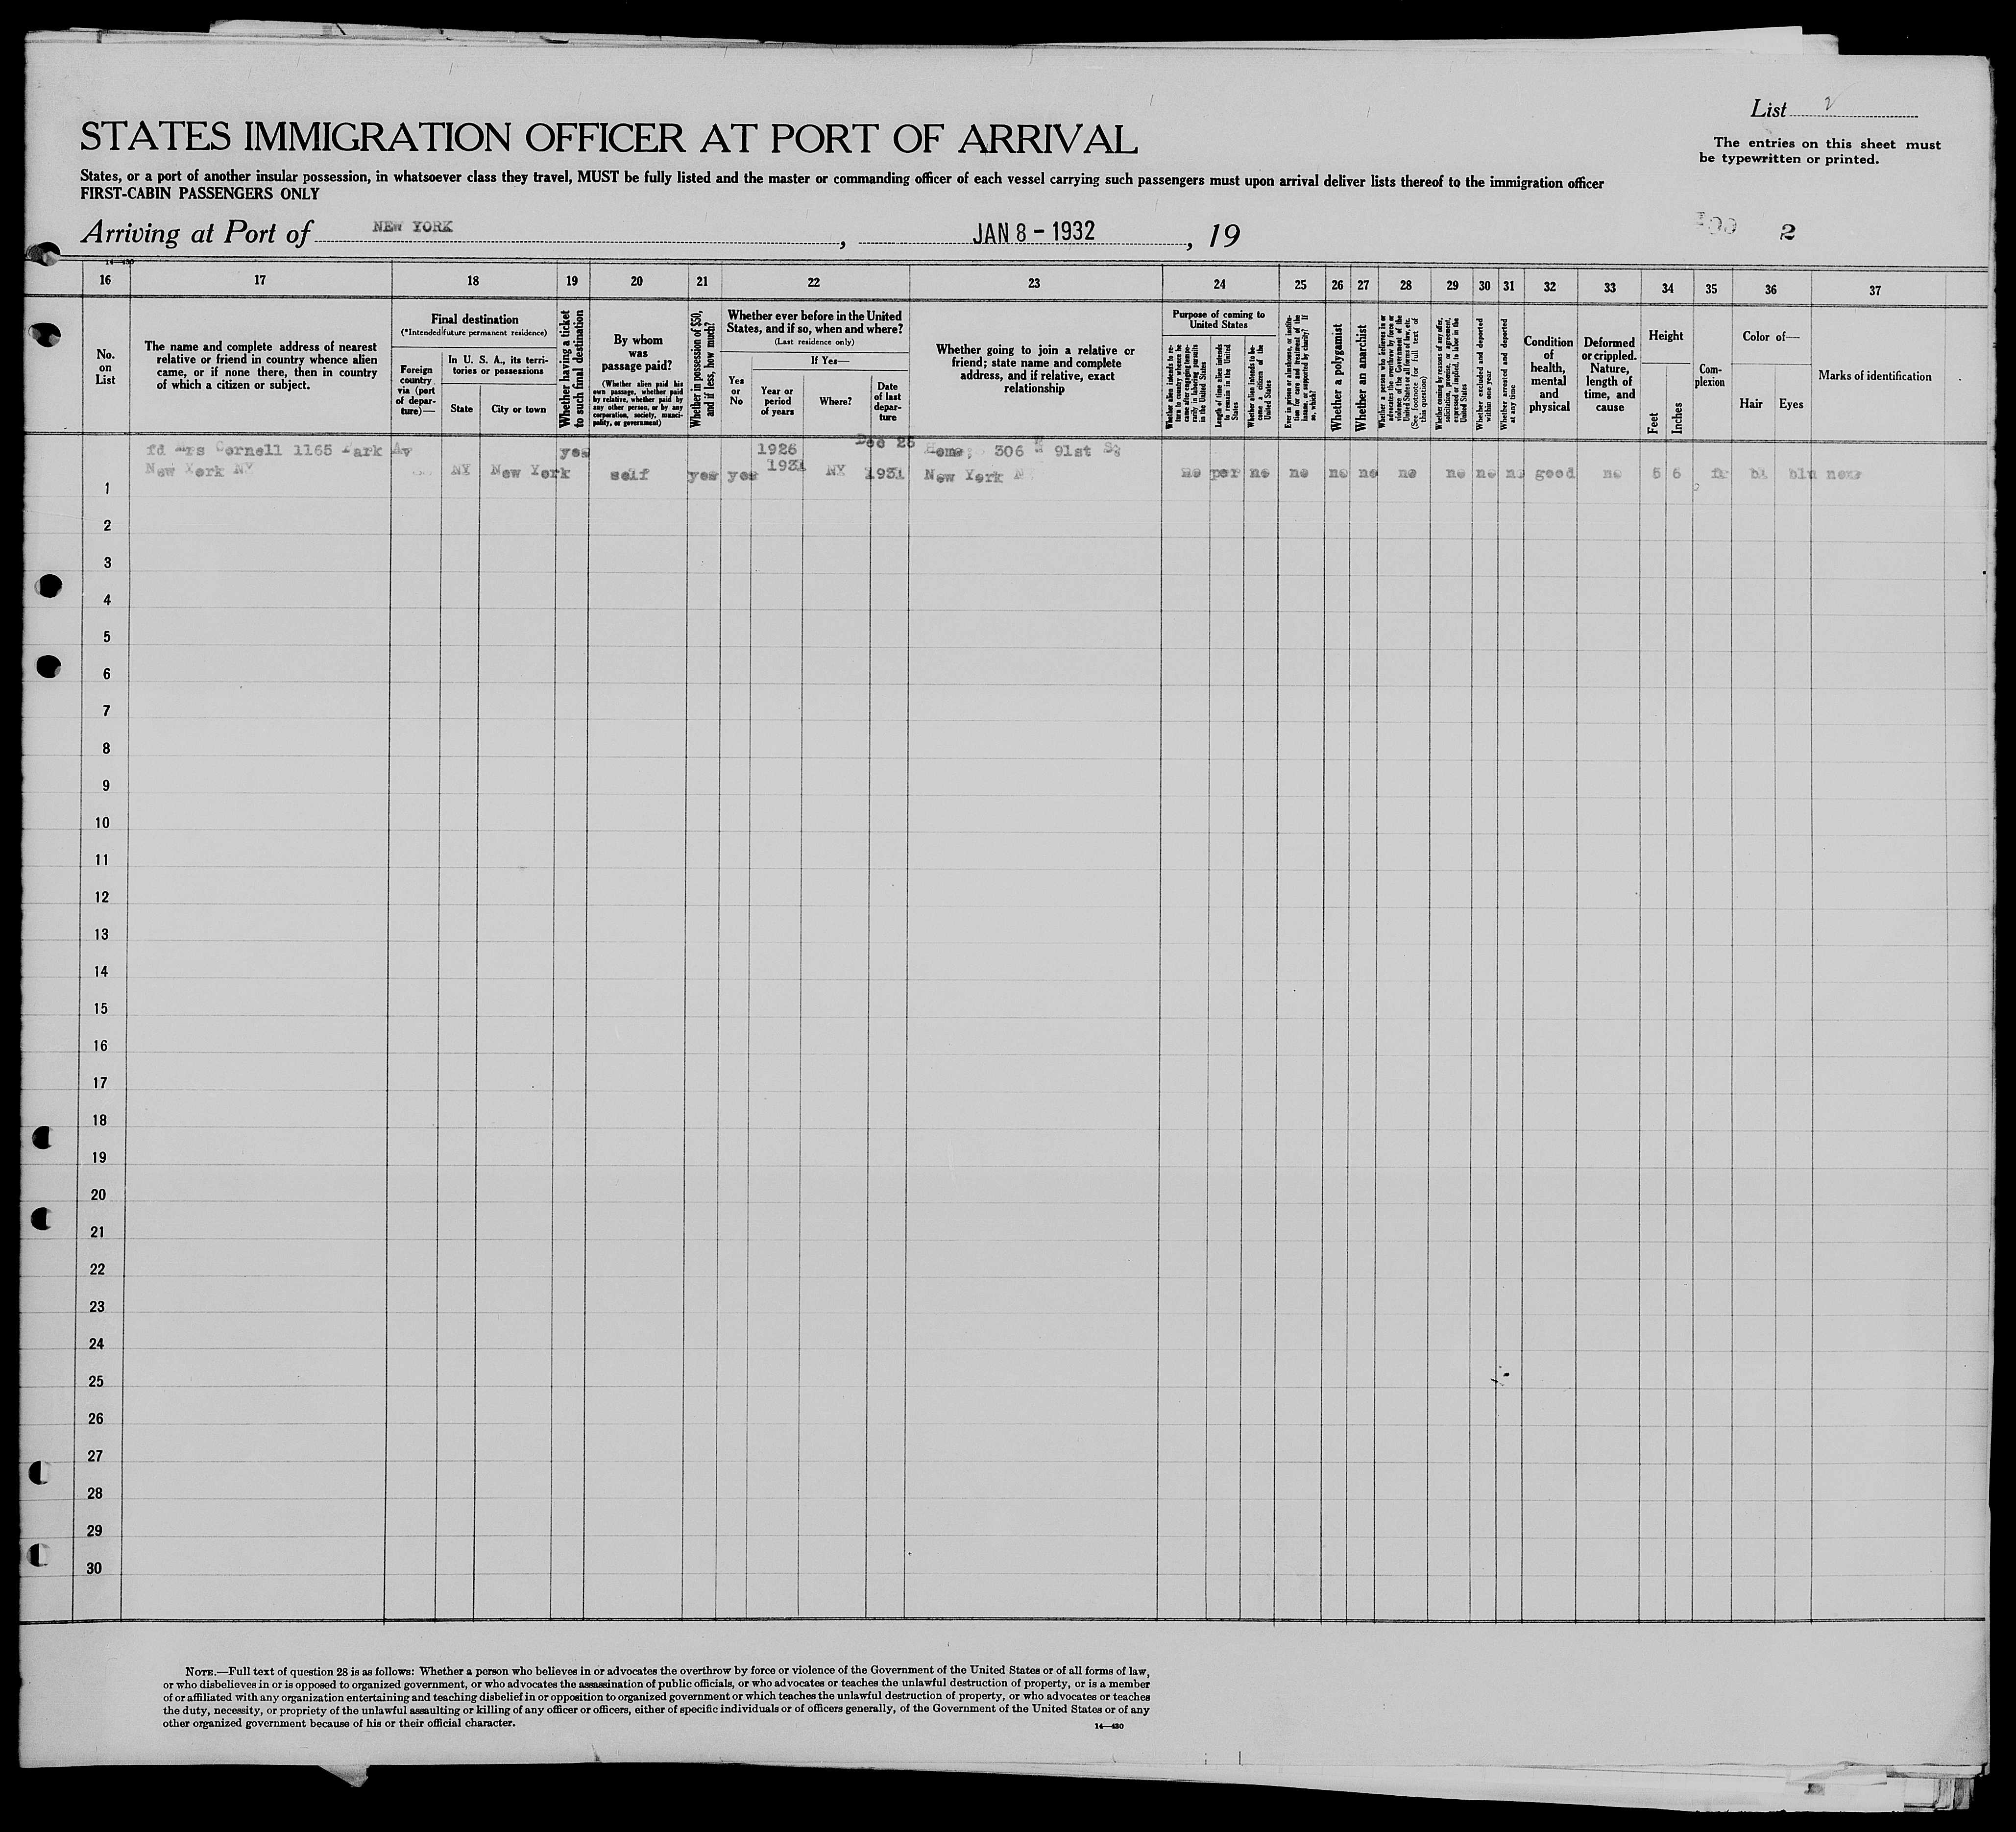 List 2
STATES IMMIGRATION OFFICER AT PORT OF ARRIVAL
The entries on this sheet must
be typewritten or printed.
States, or a port of another insular possession, in whatsoever class they travel, MUST be fully listed and the master or commanding officer of each vessel carrying such passengers must upon arrival deliver lists thereof to the immigration officer
FIRST-CABIN PASSENGERS ONLY
Arriving at Port of NEW YORK , JAN 8 - 1932 , 19
2
14—430
16 17 18 19 20 21 22 23 24 25 26 27 28 29 30 31 32 33 34 35 36 37
No.
on
List
The name and complete address of nearest
relative or friend in country whence alien
came, or if none there, then in country
of which a citizen or subject.
Final destination
(*Intended future permanent residence)
Foreign
country
via (port
of depar-
ture)—
In U. S. A., its terri-
tories or possessions
State
City or town
Whether having a ticket
to such final destination
By whom
was
passage paid?
(Whether alien paid his
own passage, whether paid
by relative, whether paid by
any other person, or by any
corporation, society, munici-
pality, or government)
Whether in possession of $50,
and if less, how much?
Whether ever before in the United
States, and if so, when and where?
(Last residence only)
Yes
or
No
If Yes—
Year or
period
of years
Where?
Date
of last
depar-
ture
Whether going to join a relative or
friend; state name and complete
address, and if relative, exact
relationship
Purpose of coming to
United States
Whether alien intends to re-
turn to country whence he
came after engaging tempo-
rarily in laboring pursuits
in the United States
Length of time alien intends
to remain in the United
States
Whether alien intends to be-
come a citizen of the
United States
Ever in prison or almshouse, or institu-
tion for care and treatment of the
insane, or supported by charity? If
so, which?
Whether a polygamist
Whether an anarchist
Whether a person who believes in or
advocates the overthrow by force or
violence of the Government of the
United States or all forms of law, etc.
(See footnote for full text of
this question)
Whether coming by reasons of any offer,
solicitation, promise, or agreement,
expressed or implied, to labor in the
United States
Whether excluded and deported
within one year
Whether arrested and deported
at any time
Condition
of
health,
mental
and
physical
Deformed
or crippled.
Nature,
length of
time, and
cause
Height
Feet
Inches
Com-
plexion
Color of—
Hair Eyes
Marks of identification
fd Mrs Cornell 1165 Park Av yes 1926 Dec 26 Home; 306 91st St
New York NY NY New York self yes yes 1931 NY 1931 New York no per no no no no no no no no good no 5 6 bl blu none
1
2
3
4
5
6
7
8
9
10
11
12
13
14
15
16
17
18
19
20
21
22
23
24
25
26
27
28
29
30
NOTE.—Full text of question 28 is as follows: Whether a person who believes in or advocates the overthrow by force or violence of the Government of the United States or of all forms of law,
or who disbelieves in or is opposed to organized government, or who advocates the assassination of public officials, or who advocates or teaches the unlawful destruction of property, or is a member
of or affiliated with any organization entertaining and teaching disbelief in or opposition to organized government or which teaches the unlawful destruction of property, or who advocates or teaches
the duty, necessity, or propriety of the unlawful assaulting or killing of any officer or officers, either of specific individuals or of officers generally, of the Government of the United States or of any
other organized government because of his or their official character.
14—430